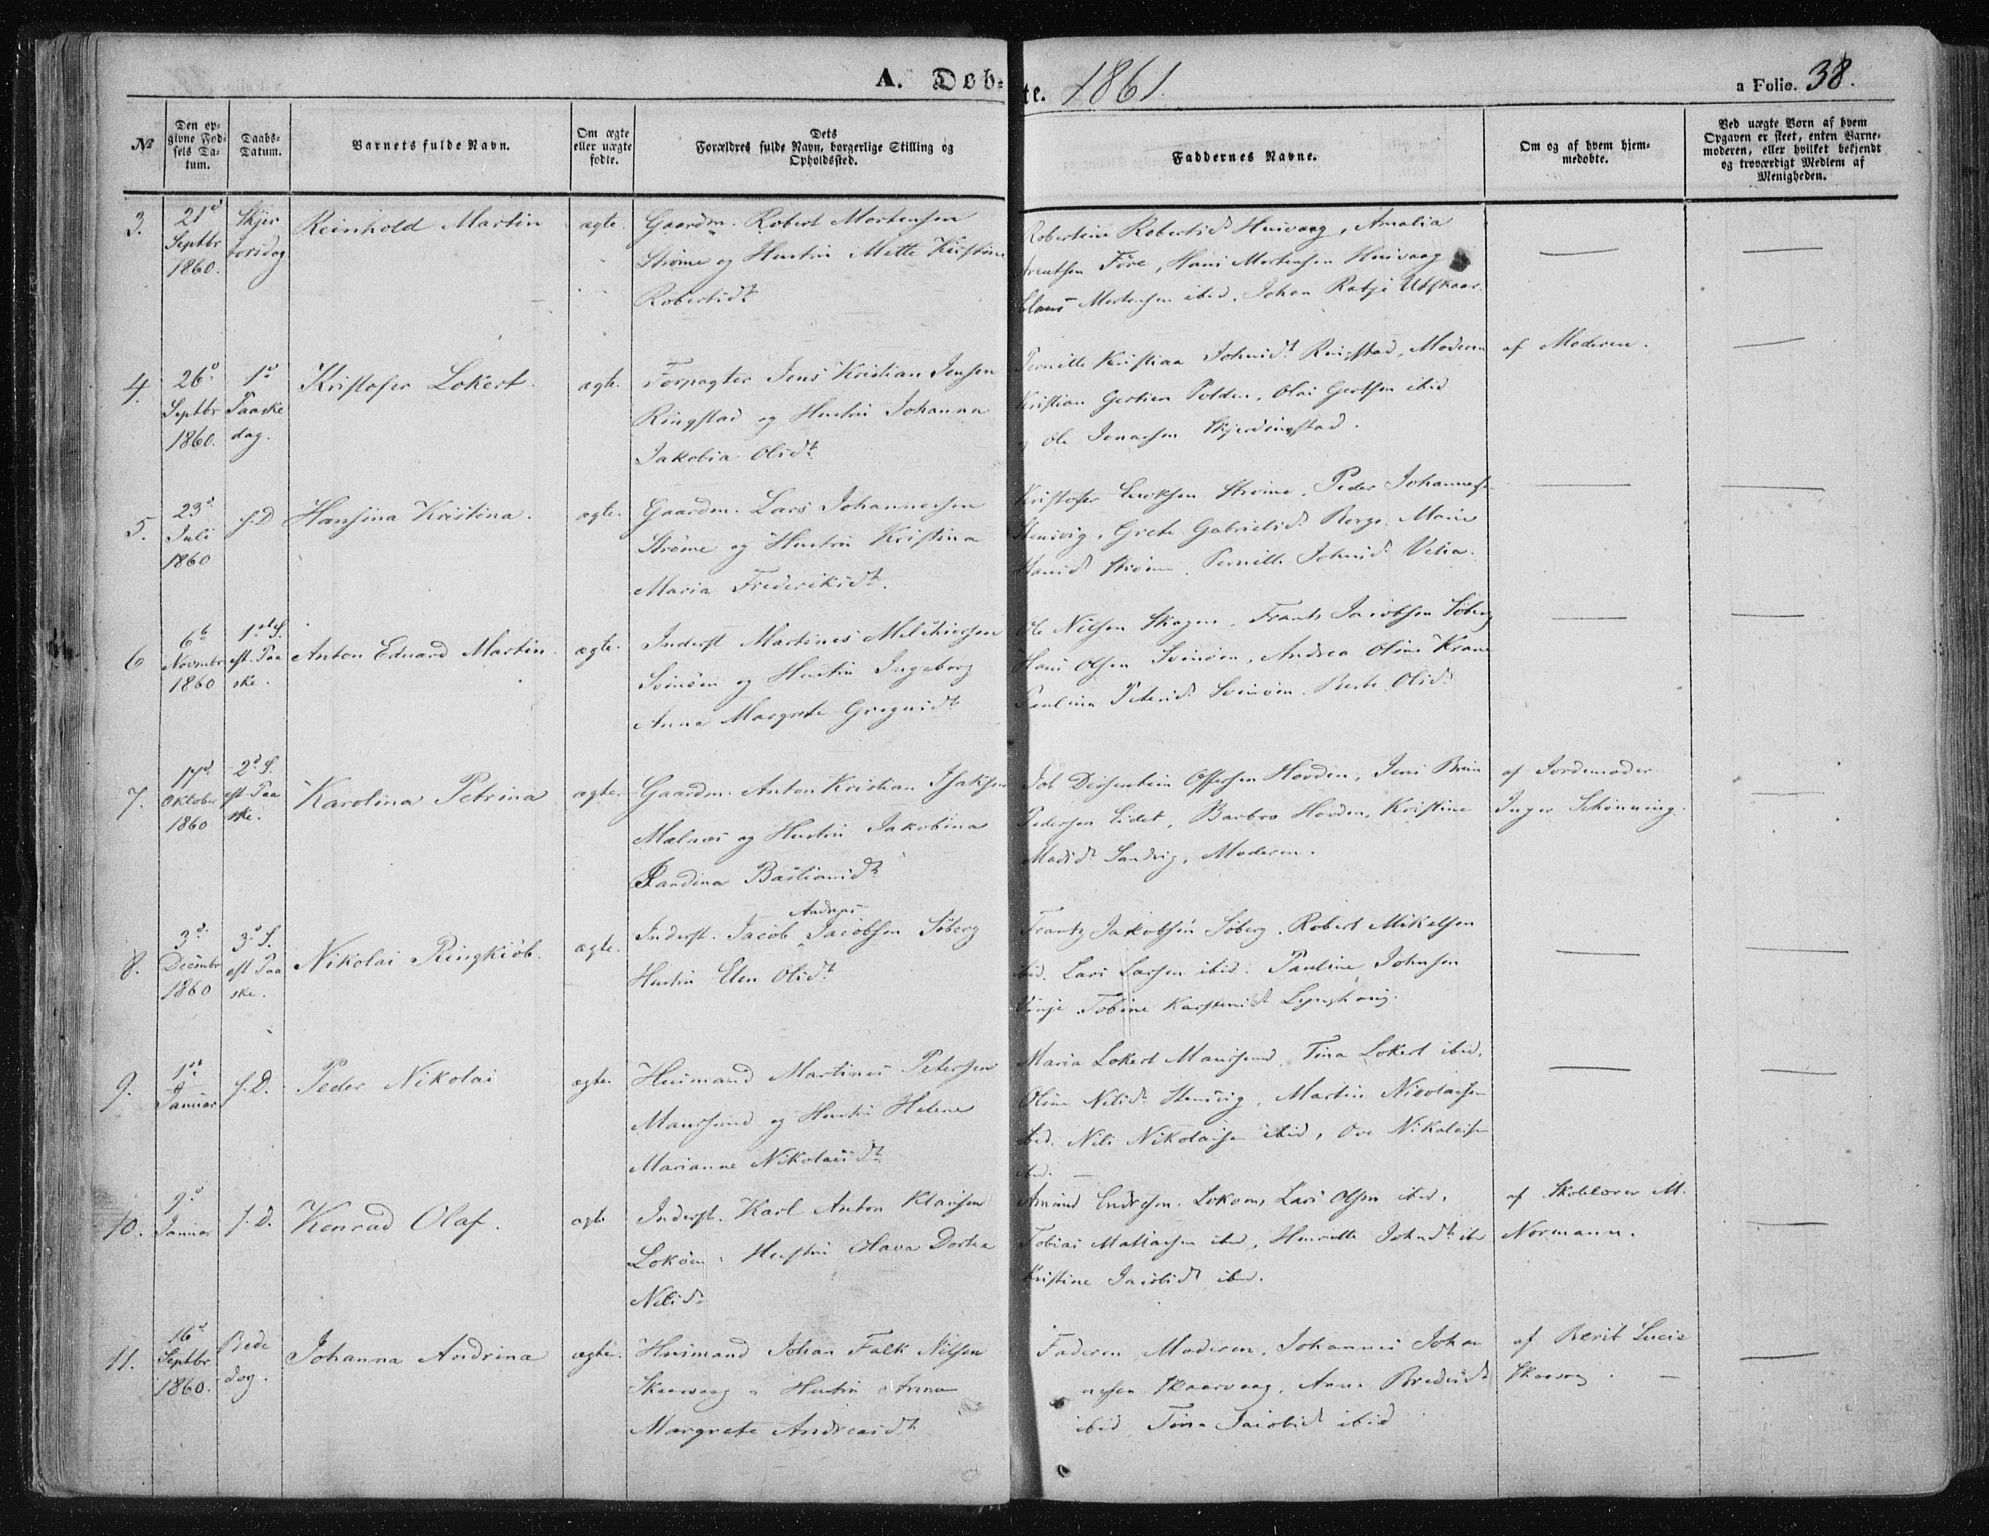 A. Døb-
te. 1861.
a Folio. 38.
No
Den op-
givne Fød-
sels Da-
tum.
Daabs-
Datum.
Barnets fulde Navn.
Om ægte
eller uægte
fødte.
Dets
Forældres fulde Navn, borgerlige Stilling og
Opholdssted.
Faddernes Navne.
Om og af hvem hjem-
medøbte.
Ved uægte Børn af hvem
Opgaven er skeet, enten Barne-
moderen, eller hvilket bekjendt
og troværdigt Medlem af
Menigheden.
3.
21d
Septbr
1860.
Skjer
torsdag
Reinhold Martin
ægte.
Gaardm. Robert Mortensen
Strøme og Hustru Mette Kirstine
Robertsdt
Robertine Robertsdt Husvaag, Amalia
Arentsen Føre, Hans Mortensen Husvaag
Claus Mortensen ibid, Johan Ratje Utskaar.
4.
26d
Septbr
1860.
1d
Paaske
dag.
Kristofer Lokert.
ægte.
Forpagter Jens Kristian Jensen
Ringstad og Hustru Johanna
Jakobia Olsdt
Pernille Kristiaa Johnsdt Ringstad, Moderen
Kristian Gertsen Polden, Olai Gertsen ibid
og Ole Jonassen Skjerdingstad.
af Moderen.
5.
23d
Juli
1860
s.D
Hansina Kristina.
ægte.
Gaardm. Lars Johannessen
Strøme og Hustru Kristina
Maria Frederiksdt.
Kristofer Eriksen Strøme, Peder Johannesen
Stensvig, Grete Gabrielsdt Borge, Marie
Hansdt Strøme, Pernille Johnsdt Vesia.
6
6te
Novmbr
1860
1ste S.
eft. Paa
ske.
Anton Eduard Martin.
ægte.
Inderst Martines Melchiorsen
Svinøen og Hustru Ingeborg
Anna Margrete Gregusdt
Ole Nilsen Skagen, Frants Jacobsen Søberg
Hans Olsen Svinøen, Andrea Olsine Krane
Paulina Petersdt Svinøen. Berte Olsdt
7.
17d
Oktober
1860
2d S.
eft. Paa
ske.
Karolina Petrina
ægte.
Gaardm. Anton Kristian Isaksen
Malnes og Hustru Jakobina
Randina Bastiansdt
Job Dirsentsin Offersen Hovden, Jens Brun
Pedersen Eidet, Barbro Hovden, Kristine
Madsdt Sandvig, Moderen.
af Jordemoder
Inger Schönning.
8.
3d
Decmbr
1860
3d S.
eft. Paa
ske.
Nikolai Ringkiöb.
ægte.
Andreas
Inderst. Jacob Jacobsen Søberg
Hustru Elen Olsdt
Frantz Jakobsen Søberg. Robert Mikelsen
ibid. Lars Larsen ibid. Pauline Johnsen
Vinje. Tobine Karstensdt Lynghaug.
9.
1ste
Januar
s.D.
Peder Nikolai
ægte.
Husmand Martines Petersen
Maursund og Hustru Helene
Marianne Nikolaisdt
Maria Lokert Maursund, Tina Lokert ibid.
Oline Nilsdt Stensvig, Martin Nicolaisen
ibid. Nils Nikolaisen ibid, Ove Nikolaisen
ibid.
10.
9d
Januar
s.D.
Konrad Olaf.
ægte
Inderst. Karl Anton Klausen
Lokøen, Hustru Olava Dortea
Nilsdt
Amund Endresen Lokøen, Lars Olsen ibid.
Tobias Mattiasen ibid, Henrette Johnsdt ibid
Kristine Jacobsdt ibid.
af Skolelærer M.
Normann.
11.
16d
Septbr
1860.
Bede
dag.
Johanna Andrina
ægte.
Husmand Johan Falk Nilsen
Skaarvaag og Hustru Anna
Margrete Andreasdt
Faderen, Moderen, Johannes Johan
nesen Skaarvaag, Anna Bredesdt
ibid Tina Jacobsdt ibid
af Berit Lucie
Skaarvag.